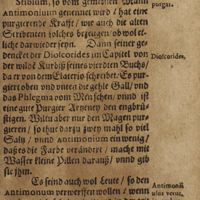 Stibium, so vom gemeinen Mann
Antimonium genennet wird / hat eine
purgierende Krafft / wie auch die alten
Scribenten solches bezeugen / ob wol et-
liche darwieder seyn. Dann seiner ge-
dencket der Dioscorides im Capitel von
der wilde Kürbiß seines vierdten Buchs/
da er von dem Elaterio schreibet / Es pur-
giert oben und unten die Gallen / und
das Phlegma vom Menschen / vnnd ist
eine gute Purgier Artzeney den engbrü-
stigen. Wiltu aber nun den Magen pur-
gieren / so thue darzu zwey mahl so viel
Saltz / vnnd Antimonium ein wenig/
daß es die Farbe verändere / mache mit
Wasser kleine Pillen darauß / vnnd gib
sie ihm.
Es seind auch wol Leute / so den
Antimonium verwerffen wollen / wenn
purgat.
Dioscorides.
Antimonii
usus verus,